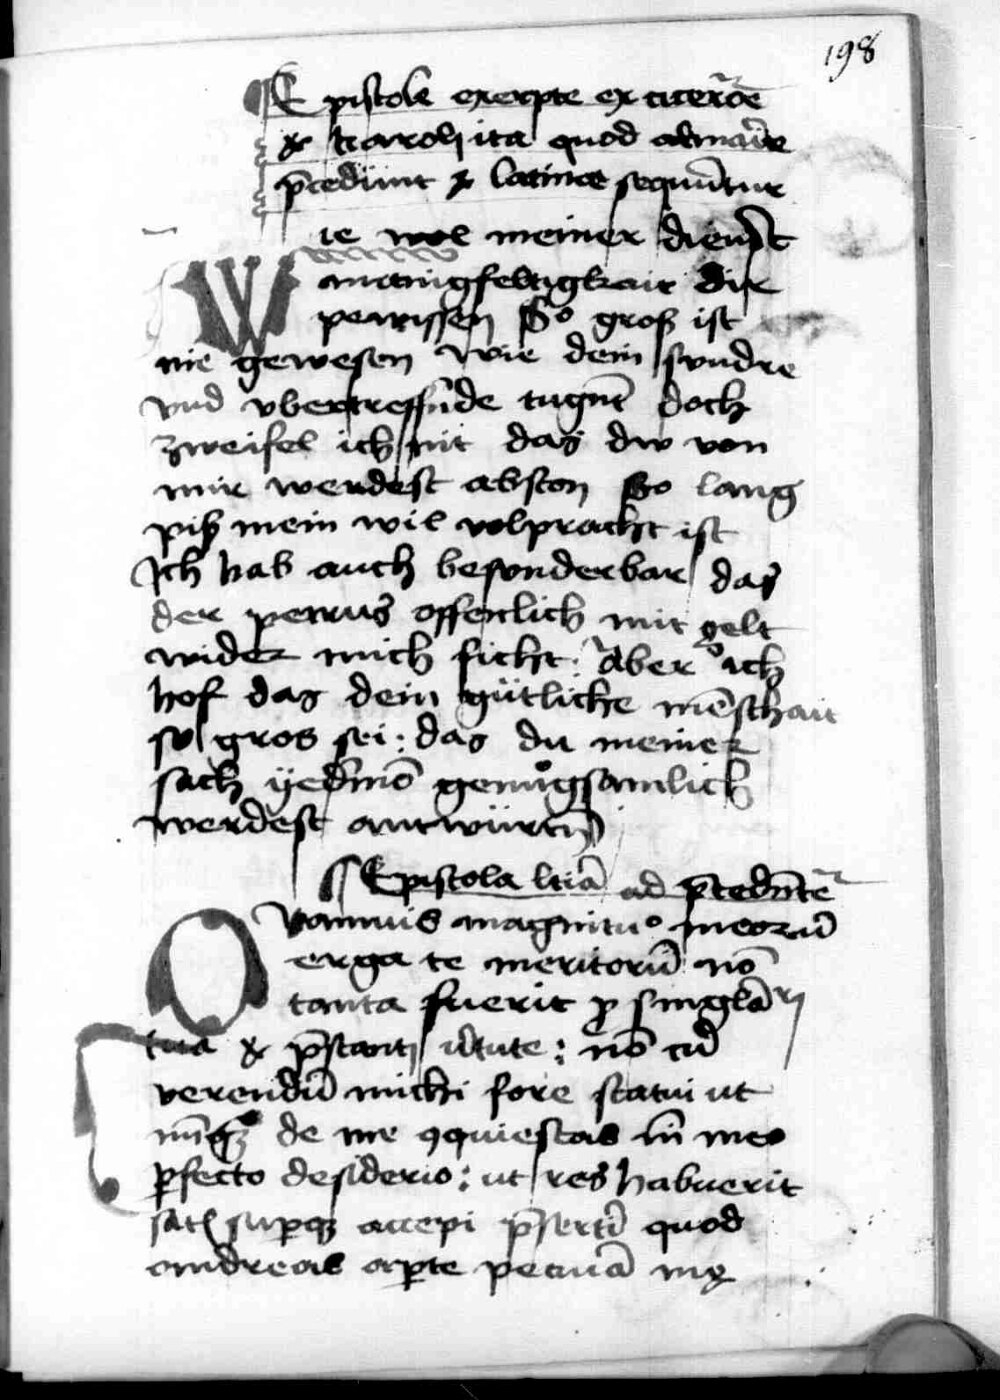 198
Epistole excerpte ex cicerōe
& karoli ita quod almanice
p̄cedunt & latine sequūtur
Wie wol meiner dienst
manigfeltigkait dir
pewissen So groß ist
nie gewesen wie dein sundre
vnd vbertreffn̄de tugnt̄ doch
zweifel ich nit das dw von
mir werdest abston So lang
piß mein wil volpracht ist
Ich hab auch besonderbar das
der petrus offenlich mit gelt
wider mich ficht: Aber ich
hof das dein gütliche mēschait
so gros sei: das du meiner
sach yedmō genůgsamlich
werdest antwürtn̄
Epistola ltīa ad p̄cedn̄tē
Quamuis magnitu° meorū
erga te meritorū nō
tanta fuerit p singlāri
tua & p̄stanti v̄tute: nō tn̄
verendū michi fore statui ut
nūq de me ꝯquiescas nī meo
ꝑfecto desiderio: ut res habuerit
satꝭ suꝑqꝫ accepi p̄sertī quod
andreas aꝑte pecuniā